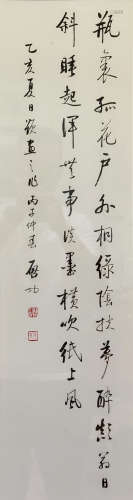 瓶裏孤花戶外桐綠陰扶夢醉顛翁日
斜睡起渾無事淡墨橫吹紙上風
乙亥夏日題畫之作丙子仲春 啟功